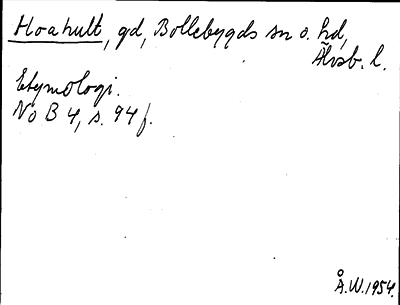 Hoahult, gd, Bollebygds sn o. hd,
Älvsb. l.
Etymologi.
No B 4, s. 94 f.
Å.W. 1954.